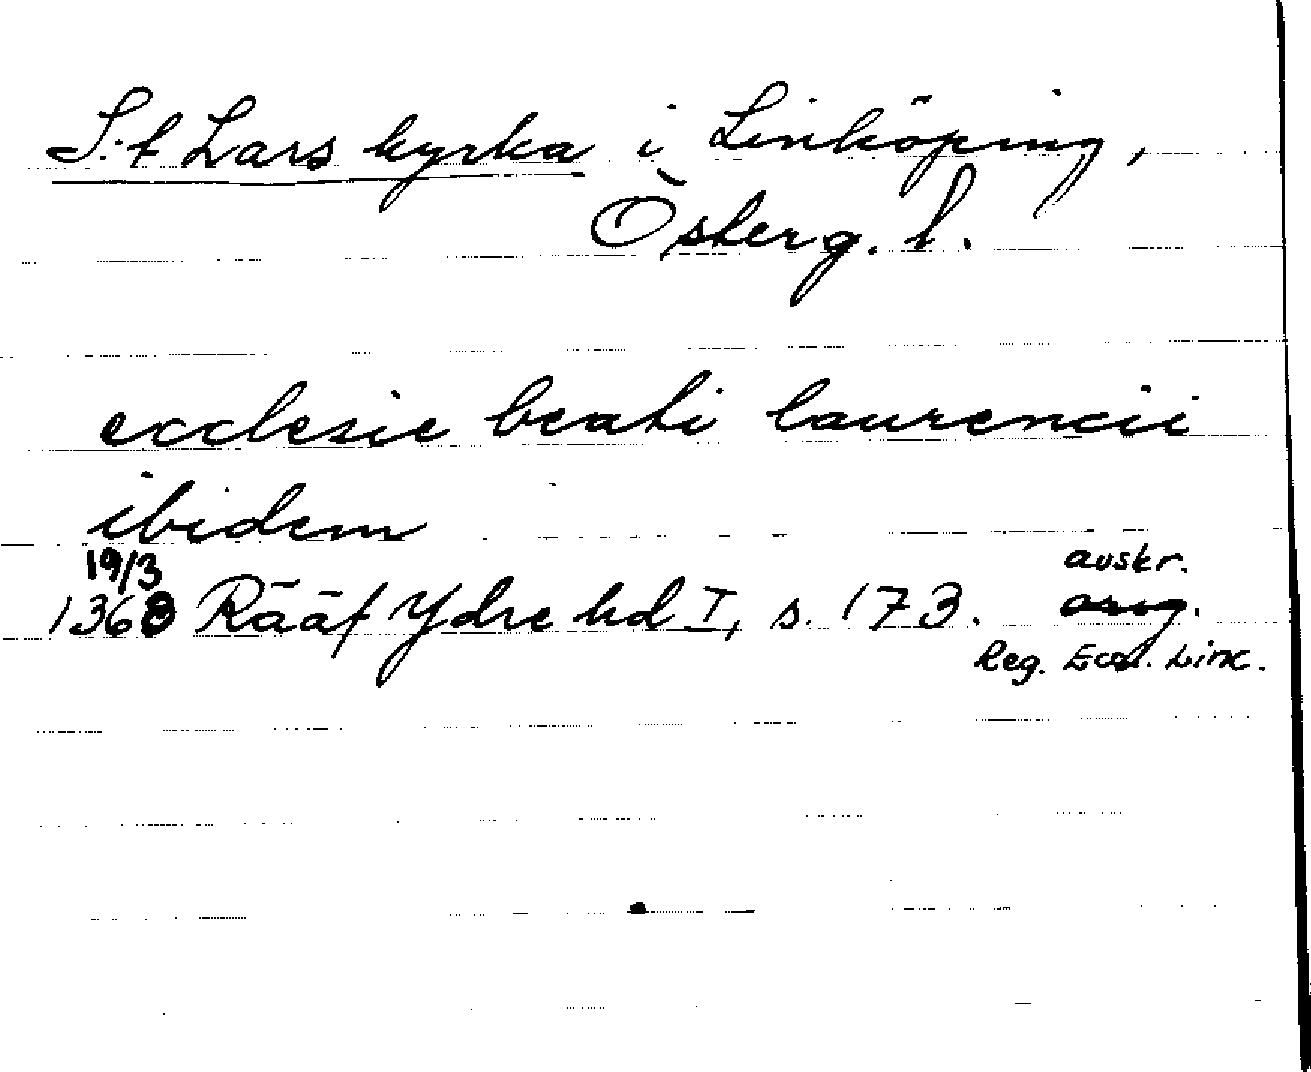 S:t Lars kyrka i Linköping,
Österg. l.
ecclesie beati laurencii
ibidem
19/3
1368 Rääf Ydre hd I, s. 173.
avskr.
orig.
Reg. Eccl. Linc.